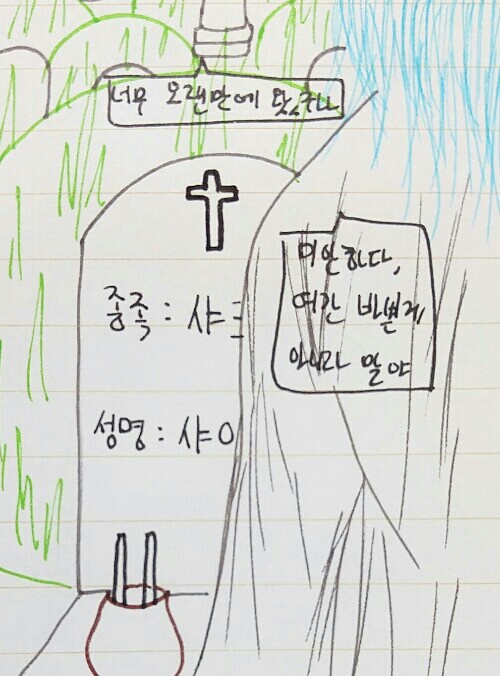 너무 오랜만에 왔구나
미안하다,
여간 바쁜게
아니라 말야
종족 : 샤
성명 : 샤